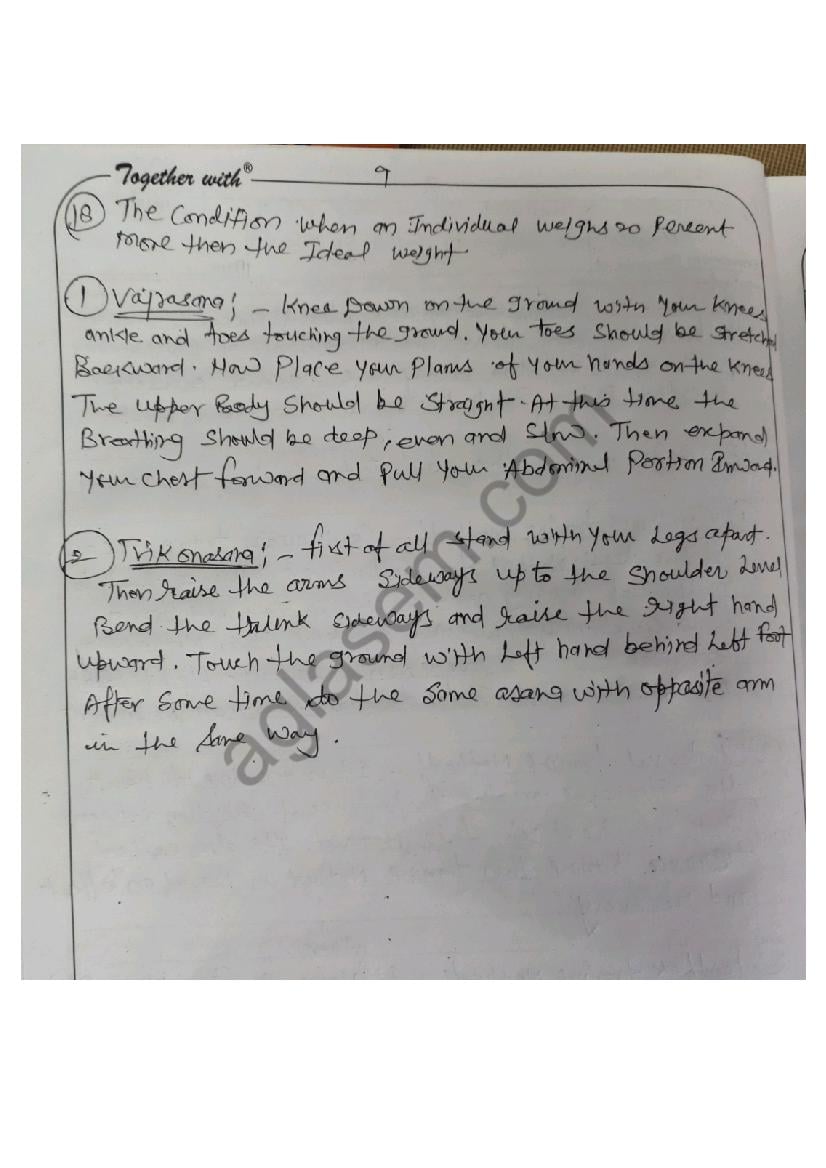 Together with® 9
18 The Condition when an Individual weighs 20 Percent
more then the Ideal weight
1 Vajrasana; - Knee Down on the ground with your knees
ankle and toes touching the ground. Your toes should be stretched
Backward. Now Place your Plams of your hands on the knees
The upper Body should be straight. At this time the
Breathing should be deep, even and slow. Then expand
your chest forward and Pull your Abdominal Portion Inward.
2 Trikonasana; - first of all stand with your Legs apart.
Then raise the arms sideways up to the shoulder Level
Bend the trunk sideways and raise the right hand
upward. Touch the ground with Left hand behind Left foot
After some time do the same asana with opposite arm
in the same way.
aglasem.com